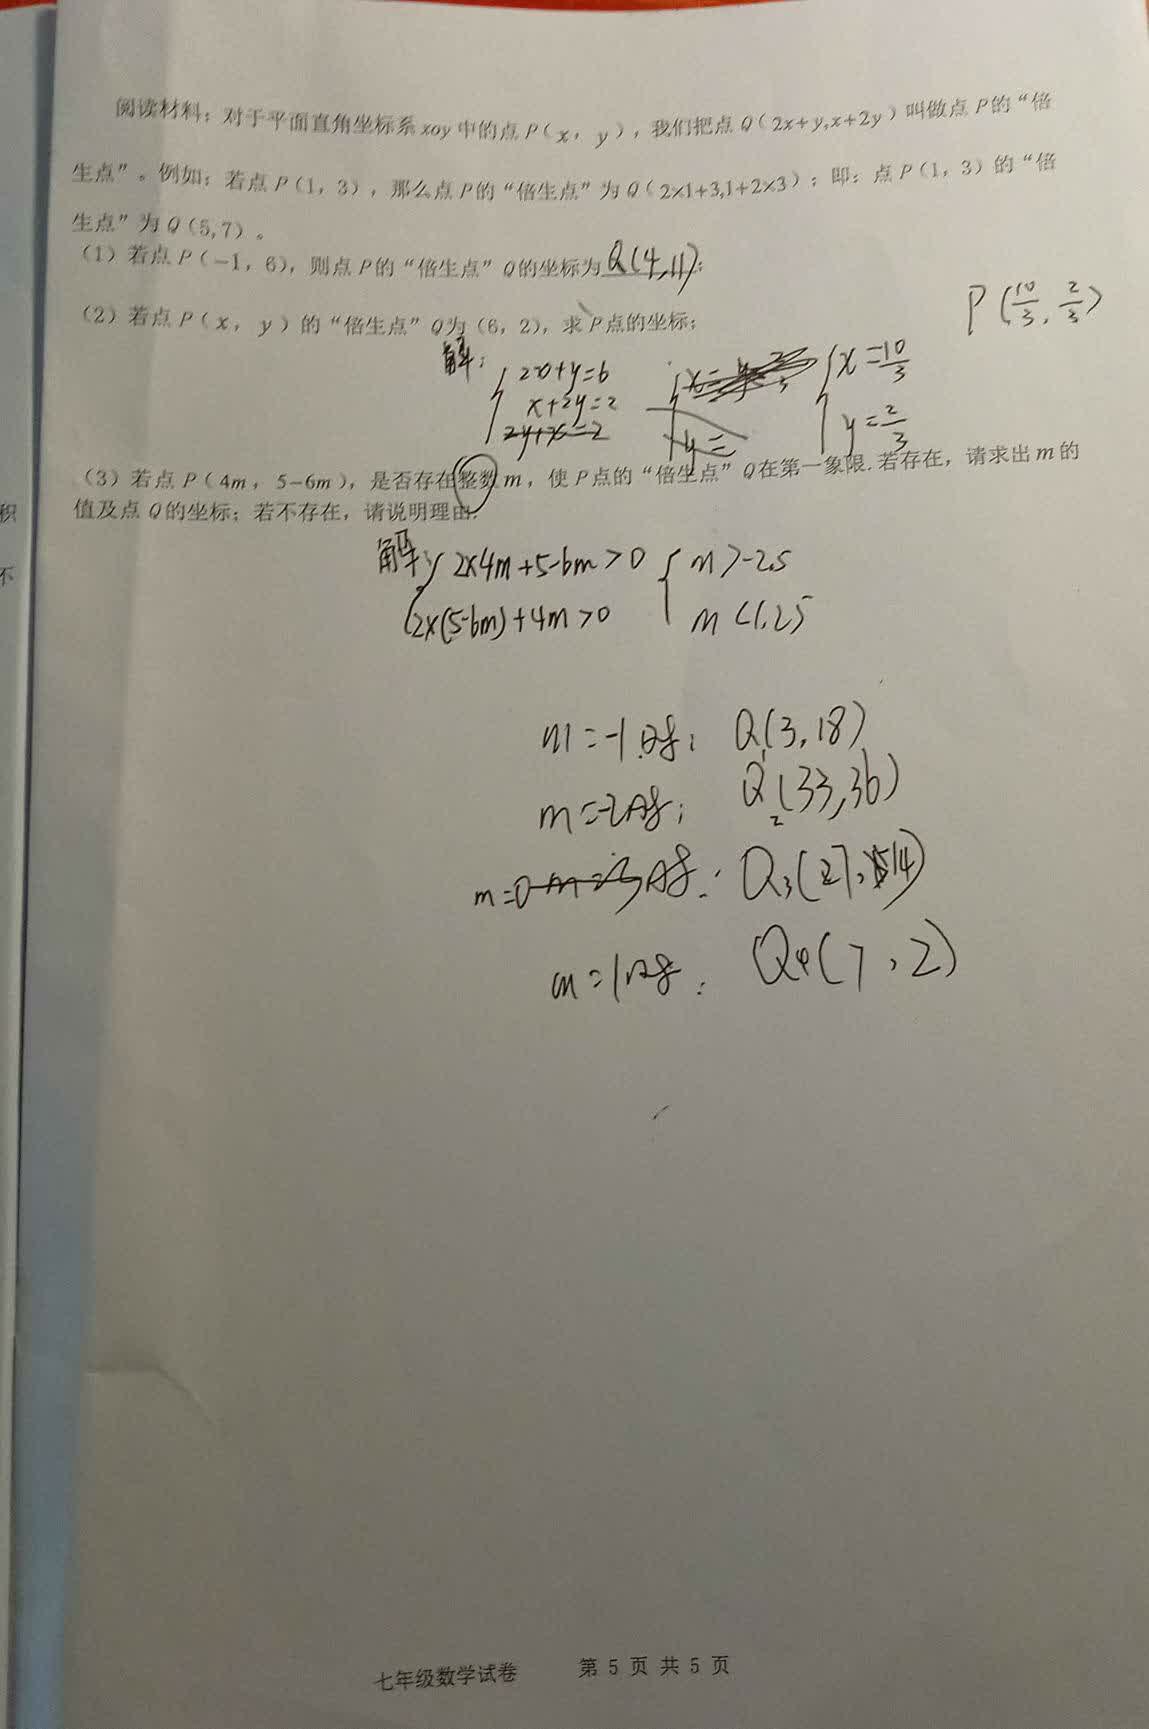 阅读材料：对于平面直角坐标系xoy中的点P(x，y)，我们把点Q(2x+y,x+2y)叫做点P的“倍
生点”。例如：若点P(1，3)，那么点P的“倍生点”为Q(2×1+3,1+2×3)；即：点P(1，3)的“倍
生点”为Q(5,7)。
(1)若点P(-1，6)，则点P的“倍生点”Q的坐标为Q(4,11);
(2)若点P(x，y)的“倍生点”Q为(6，2)，求P点的坐标；
P(10/3, 2/3)
解：
2x+y=6
x+2y=2
2y+x=2
y=
x=10/3
y=2/3
(3)若点P(4m，5-6m)，是否存在整数m，使P点的“倍生点”Q在第一象限.若存在，请求出m的
值及点Q的坐标；若不存在，请说明理由.
解：2×4m+5-6m>0 m>-2.5
2×(5-6m)+4m>0 m<1.25
m=-1时：Q1(3,18)
m=-2时：Q2(33,36)
m=0时：Q3(27,14)
m=1时：Q4(7,2)
七年级数学试卷 第 5 页 共 5 页
积
不